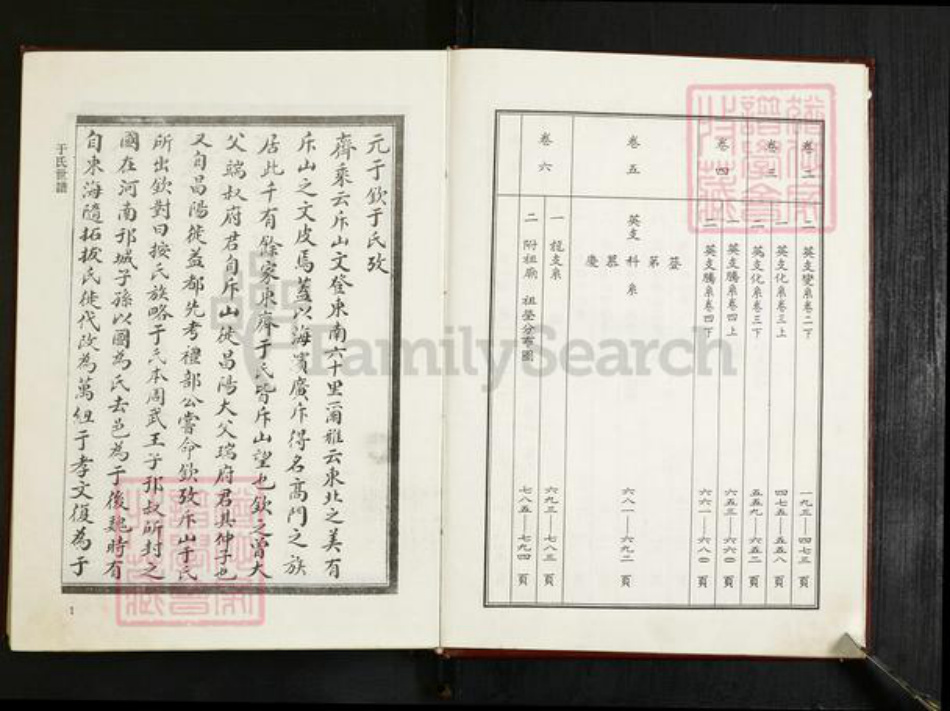 卷二 一 英支變系卷二下 一九三——四七三 頁
卷三 一 英支化系卷三上 四七五——五五八 頁
二 英支化系卷三下 五五九——六五二 頁
卷四 一 英支騰系卷四上 六五三——六六〇 頁
二 英支騰系卷四下 六六一——六八〇 頁
卷五 英支科系 六八一——六九二 頁
卷六 一 龍支系 六九三——七八三 頁
二 附祖廟 祖塋分布圖 七八五——七九四 頁
元于欽于氏攷
齊乘云斥山文登東南六十里爾雅云東北之美有
斥山之文皮焉蓋以海濱廣斥得名高門之族
居此千有餘家東齊于氏皆斥山望也欽之曾大
父瑞叔府君自斥山徙昌陽大父瑞府君其仲子也
又自昌陽徙益都先考禮部公嘗命欽攷斥山于氏
所出欽對曰按氏族略于氏本周武王子邘叔所封之
國在河南邘城子孫以國為氏去邑為于後魏時有
自東海隨拓拔氏徙代改為萬紐于孝文復為于
于氏世譜
1
FamilySearch